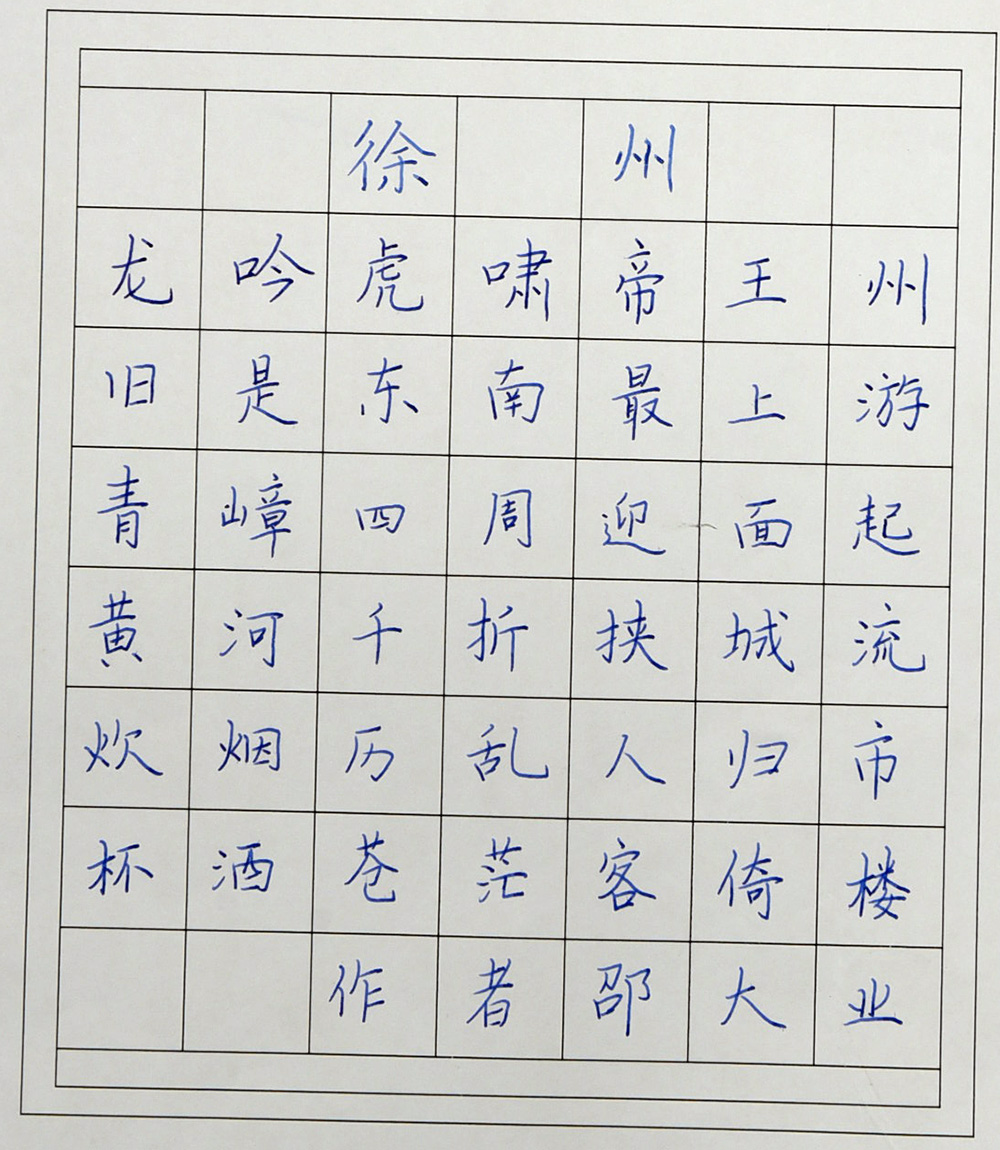 徐州
龙吟虎啸帝王州
旧是东南最上游
青嶂四周迎面起
黄河千折挟城流
炊烟历乱人归市
杯酒苍茫客倚楼
作者邵大业